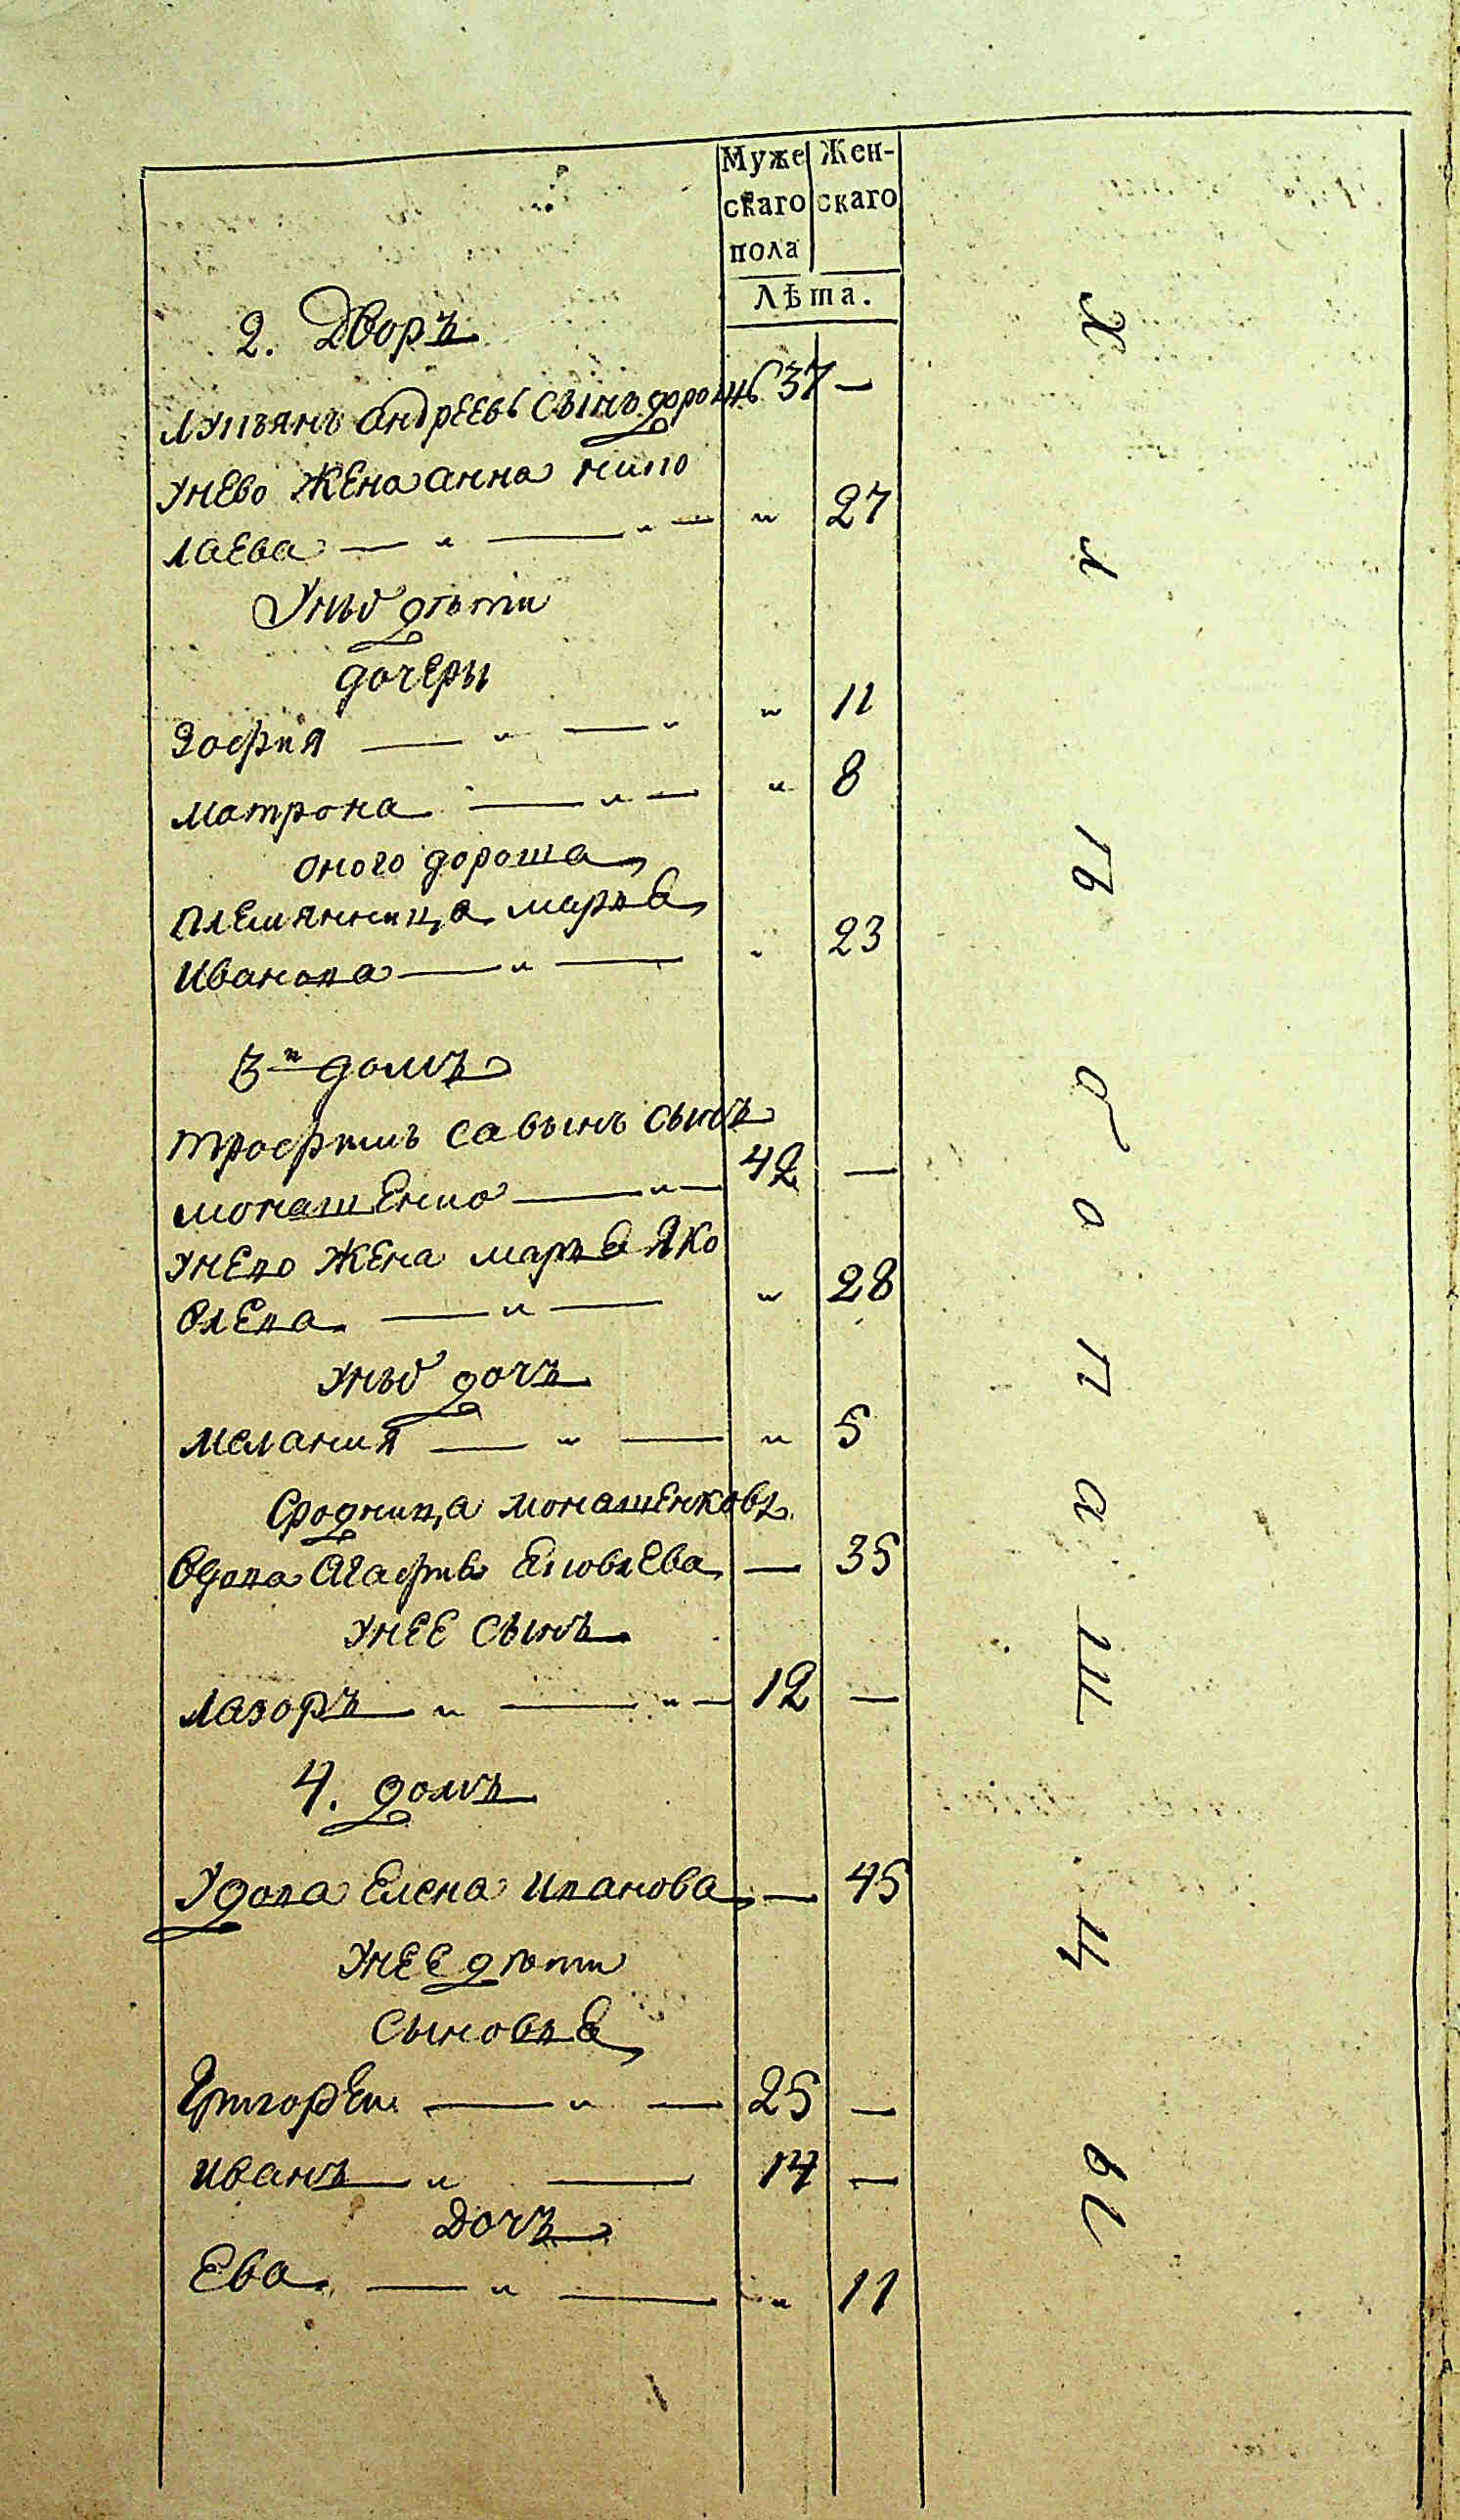 Муже Жен-
скаго скаго
пола
Лѣта.
2. Дворъ
Лукъянъ андреевъ сынъ дорошъ 37 —
унево жена анна нико
лаева — „ — „ — „ 27
Унихъ дѣти
дочери
Зофия — „ — „ „ 11
матрона — „ — „ 8
оного дороша
племянница марва
Иванова — „ — „ 23
3й домъ
трофимъ савынъ сынъ
монашенко — „ — 42 —
унево жена марва Яко
влева — „ — „ 28
унихъ дочъ
мелания — „ — „ 5
Сродница монашенкова
вдова Агафия Яковлева — 35
унее сынъ
лазоръ „ — „ — 12 —
4. домъ
Удова Елена иванова — 45
унее дѣти
сыновья
Григорей — „ — 25 —
иванъ „ — 14 —
Дочъ
Ева — „ — „ 11
Х л ѣ б о п а ш ц ы